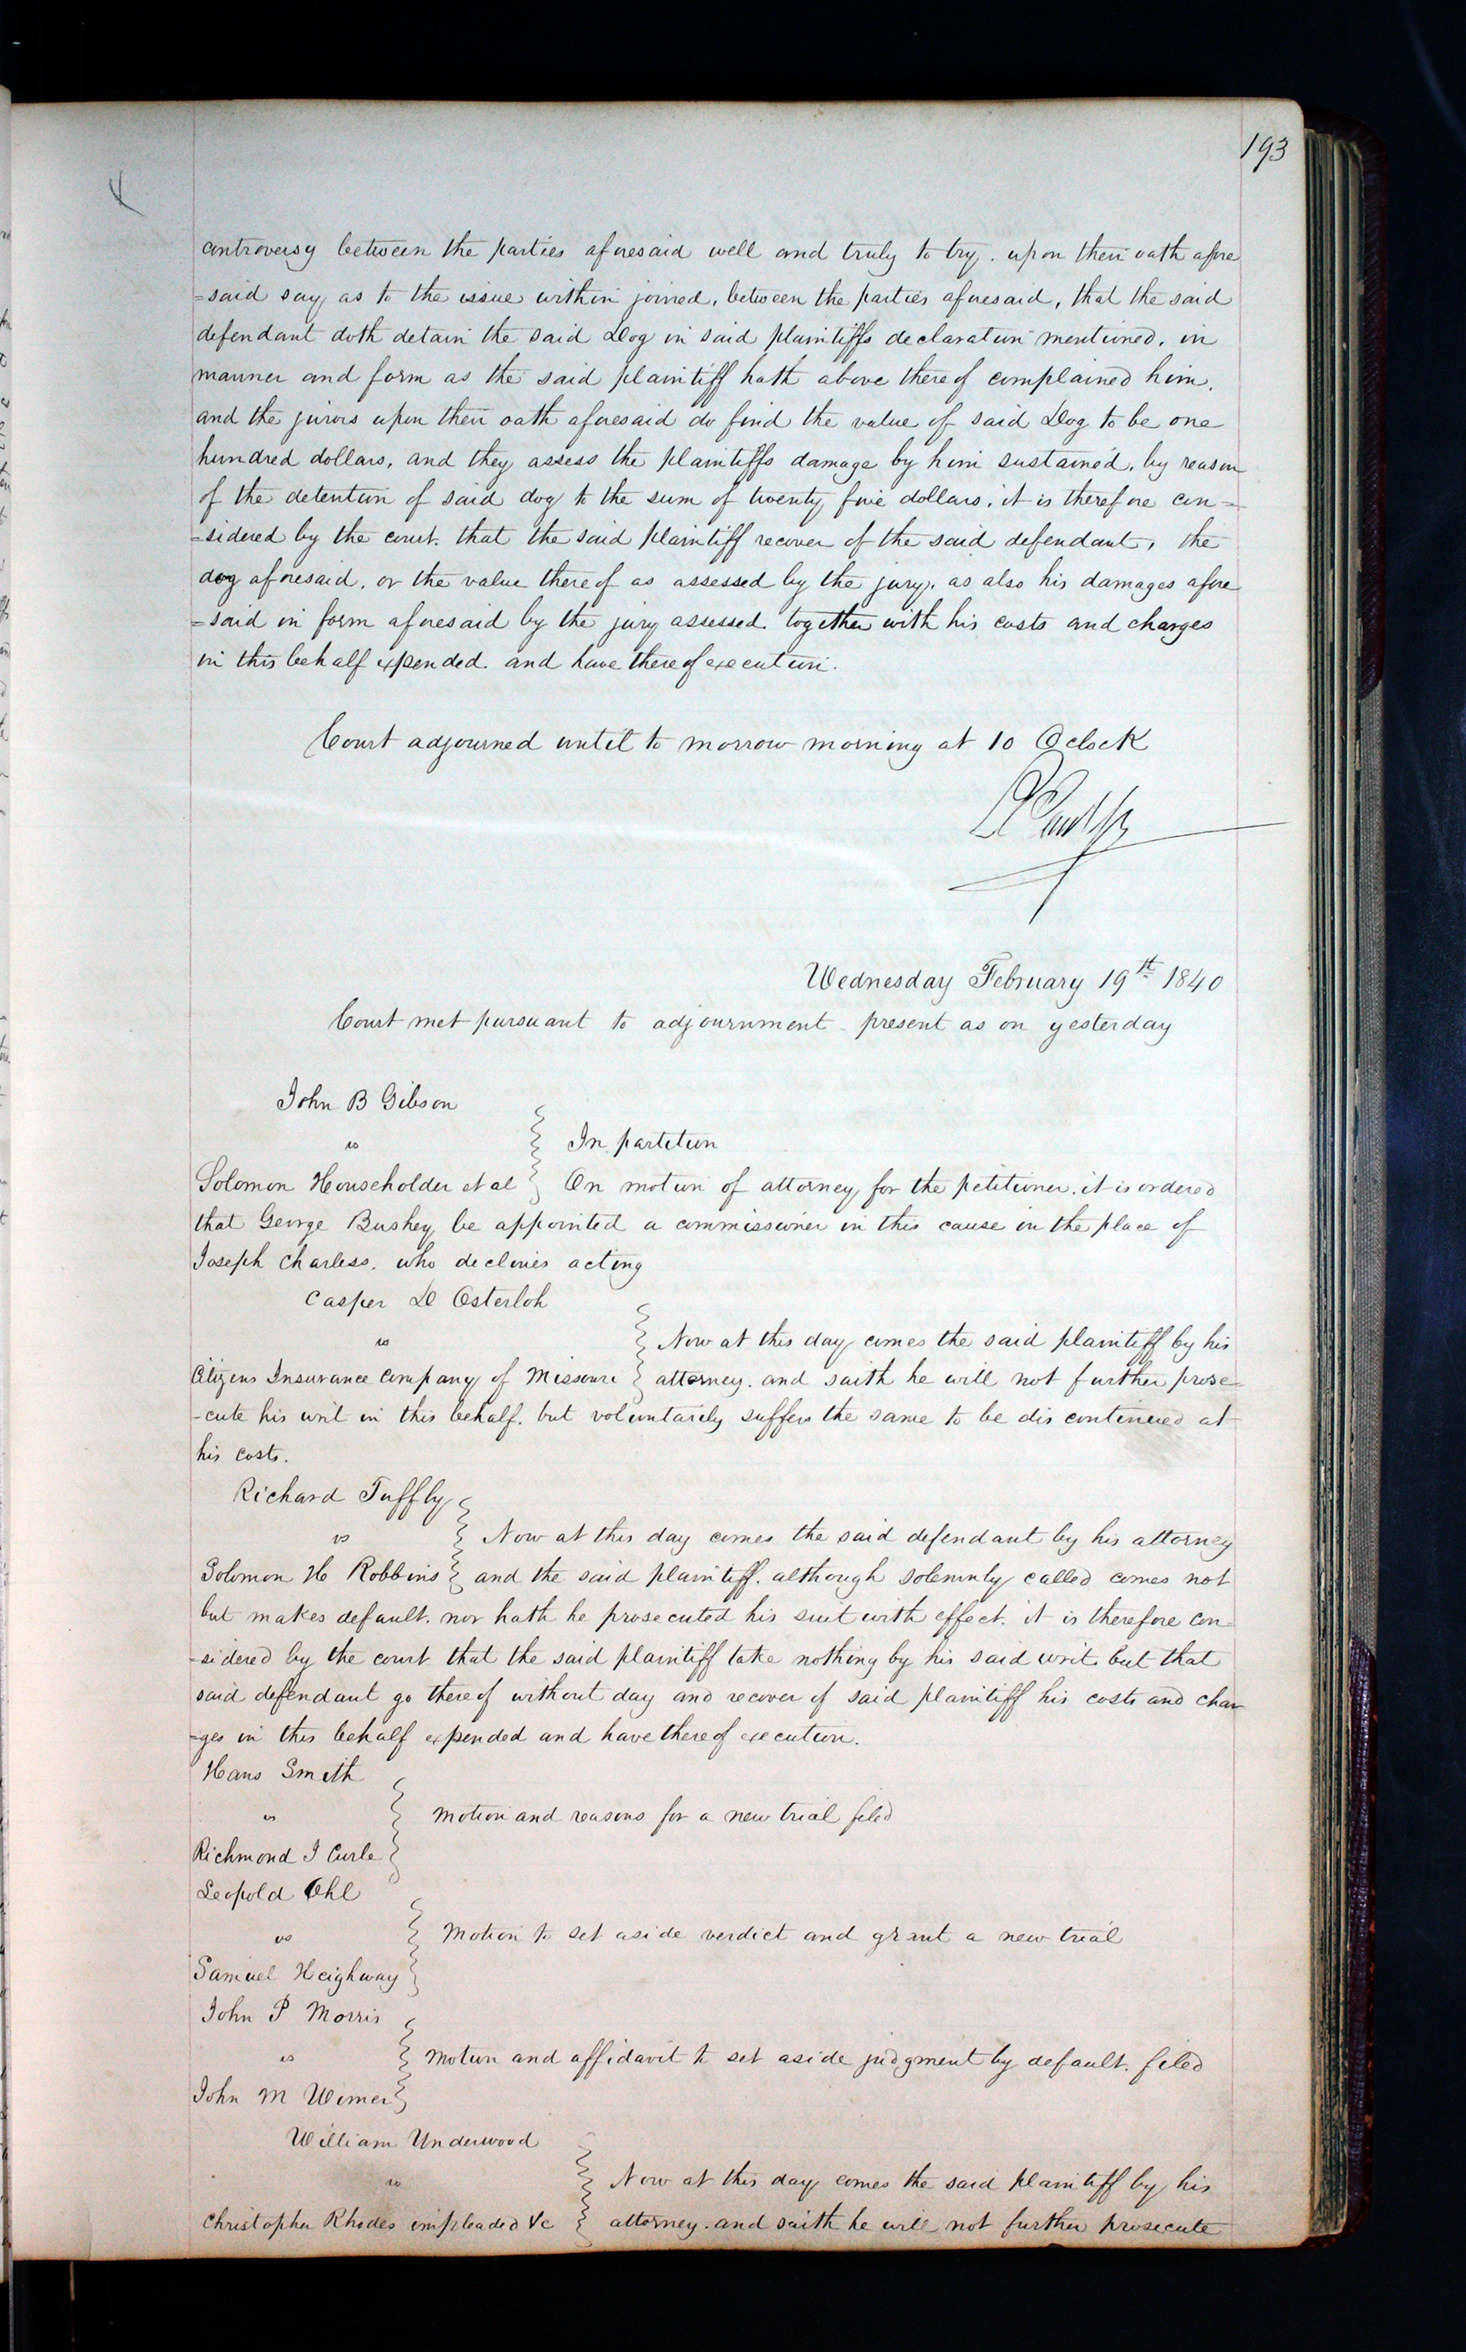 193
controversy between the parties aforesaid well and truly to try. upon their oath afore
=said say as to the issue within joined, between the parties aforesaid, that the said
defendant doth detain the said Dog in said plaintiffs declaration mentioned. in
manner and form as the said plaintiff hath above thereof complained him.
and the jurors upon their oath aforesaid do find the value of said Dog to be one
hundred dollars. and they assess the plaintiffs damage by him sustained, by reason
of the detention of said dog to the sum of twenty five dollars. it is therefore con=
=sidered by the court. that the said plaintiff recover of the said defendant, the
dog aforesaid. or the value thereof as assessed by the jury. as also his damages afore
=said in form aforesaid by the jury assessed. together with his costs and charges
in this behalf expended. and have thereof execution.
Court adjourned until to morrow morning at 10 Oclock
Wednesday February 19th 1840
Court met pursuant to adjournment present as on yesterday
John B Gibson
vs In partition
Solomon Householder et al On motion of attorney for the petitioner. it is ordered
that George Bushey be appointed a commissioner in this cause in the place of
Joseph Charless. who declines acting
Casper D Osterloh
vs Now at this day comes the said plaintiff by his
Citizens Insurance Company of Missouri attorney. and saith he will not further prose=
-cute his writ in this behalf. but voluntarily suffers the same to be dis continued at
his costs.
Richard Tuffly
vs Now at this day comes the said defendant by his attorney
Solomon H Robbins and the said plaintiff. although solemnly called comes not
but makes default. nor hath he prosecuted his suit with effect. it is therefore con
-sidered by the court that the said plaintiff take nothing by his said writ. but that
said defendant go thereof without day and recover of said plaintiff his costs and char
-ges in this behalf expended and have thereof execution.
Hans Smith
vs motion and reasons for a new trial filed
Richmond J Curle
Leopold Ohl
vs Motion to set aside verdict and grant a new trial
Samuel Heighway
John P Morris
vs Motion and affidavit to set aside judgment by default. filed
John M Wimer
William Underwood
vs Now at this day comes the said plaintiff by his
Christopher Rhodes impleaded &c attorney. and saith he will not further prosecute